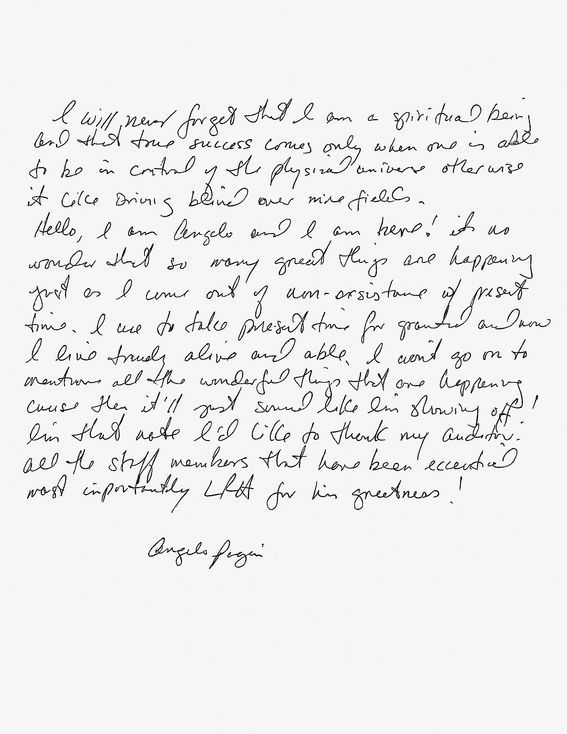 I will never forget that I am a spiritual being
and that true success comes only when one is able
to be in control of the physical universe otherwise
it like driving blind over mine fields.
Hello, I am Angelo and I am here! its no
wonder that so many great things are happening
just as I come out of non-exsistance of present
time. I use to take present time for granted and now
I live truely alive and able. I won't go on to
mentions all the wonderful things that are happening
cause then it'll just sound like I'm showing off!
I'm that note I'd like to thank my auditor.
all the staff members that have been eccential
most importantly LRH for his greatness!
Angelo